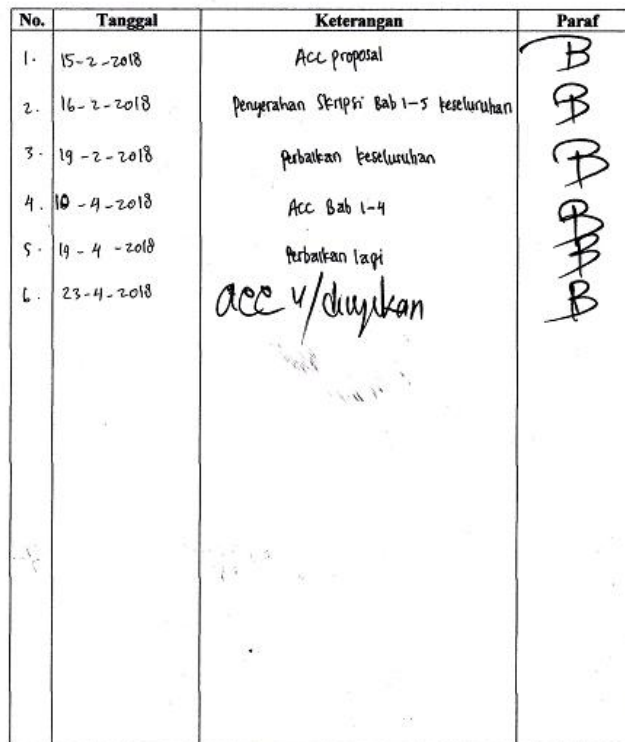 No. Tanggal Keterangan Paraf
1. 15-2-2018 Acc proposal B
2. 16-2-2018 Penyerahan Skripsi Bab 1-5 keseluruhan B
3. 19-2-2018 perbaikan keseluruhan B
4. 10-4-2018 Acc Bab 1-4 B
5. 19-4-2018 Perbaikan lagi B
6. 23-4-2018 acc u/ diujikan B